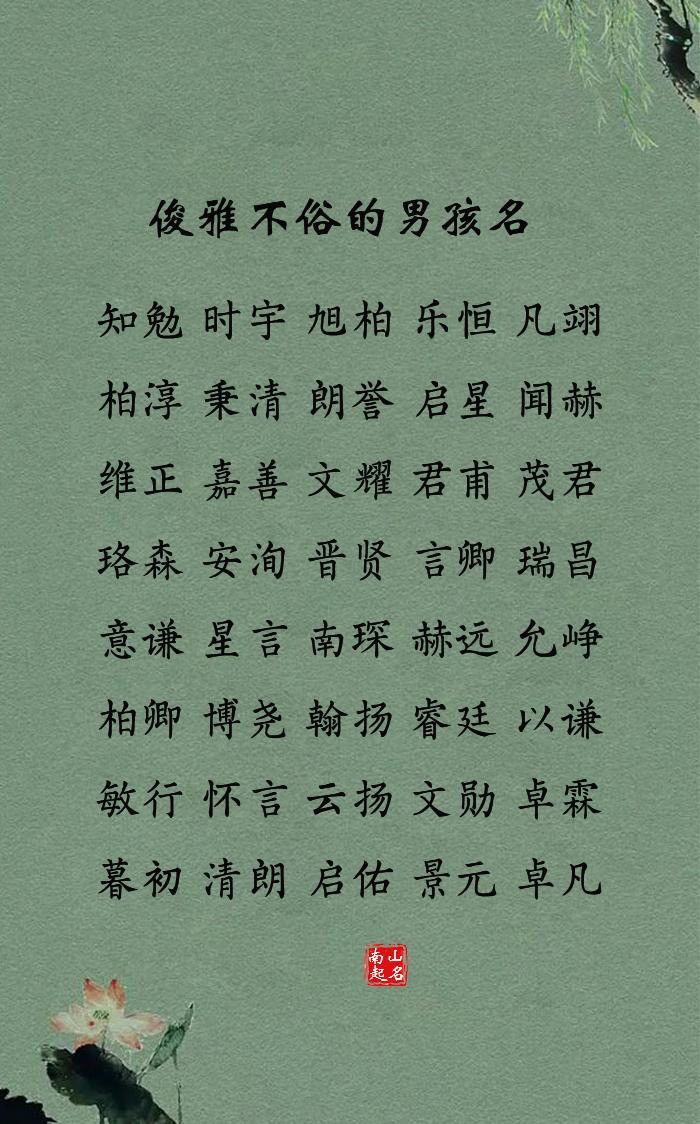 俊雅不俗的男孩名
知勉 时宇 旭柏 乐恒 凡翊
柏淳 秉清 朗誉 启星 闻赫
维正 嘉善 文耀 君甫 茂君
珞森 安洵 晋贤 言卿 瑞昌
意谦 星言 南琛 赫远 允峥
柏卿 博尧 翰扬 睿廷 以谦
敏行 怀言 云扬 文勋 卓霖
暮初 清朗 启佑 景元 卓凡
南山
起名